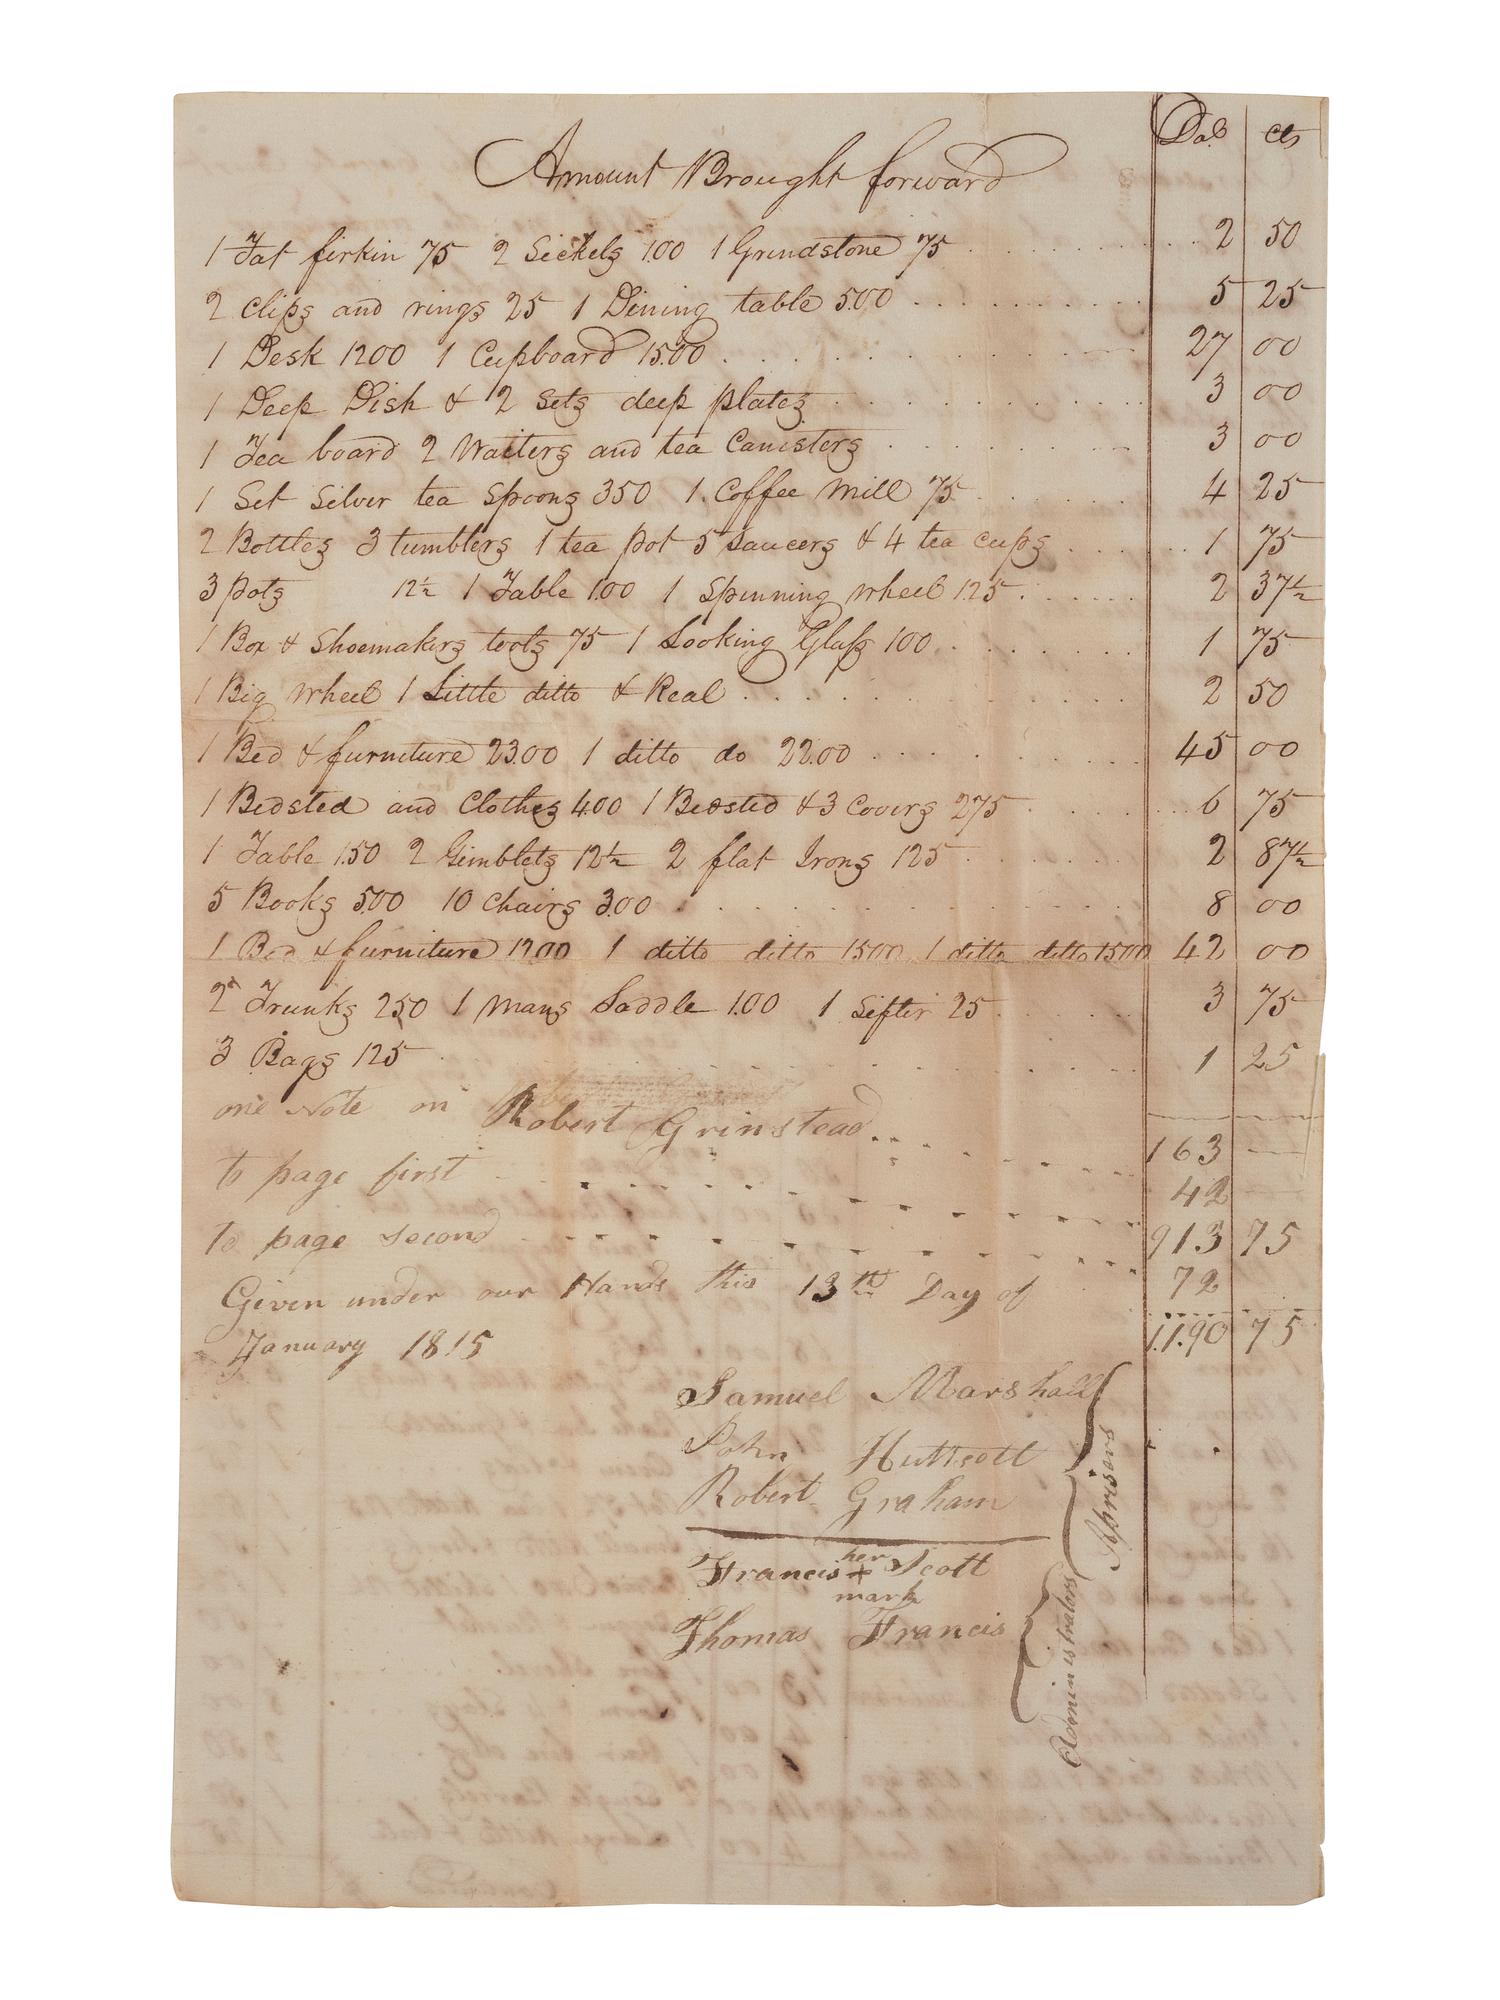 Dols cts
Amount Brought forward
1 Fat firkin 75 2 Sickels 1.00 1 Grindstone 75 2 50
2 Clips and rings 25 1 Dining table 5.00 5 25
1 Desk 12.00 1 Cupboard 15.00 27 00
1 Deep Dish & 2 Sets deep plates 3 00
1 Tea board 2 Waiters and tea Canisters 3 00
1 Set Silver tea Spoons 3.50 1 Coffee Mill 75 4 25
2 Bottles 3 tumblers 1 tea pot 5 Saucers & 4 tea cups 1 75
3 pots 12½ 1 Table 1.00 1 Spinning wheel 1.25 2 37½
1 Box & Shoemakers tools 75 1 Looking Glass 100 1 75
1 Big wheel 1 Little ditto & Real 2 50
1 Bed & furniture 23.00 1 ditto do 22.00 45 00
1 Bedsted and Clothes 4.00 1 Bedsted & 3 Covers 2.75 6 75
1 Table 1.50 2 Gimblets 12½ 2 flat Irons 1.25 2 87½
5 Books 5.00 10 Chairs 3.00 8 00
1 Bed & furniture 12.00 1 ditto ditto 15.00 1 ditto ditto 15.00 42 00
2 Trunks 2.50 1 Mans Saddle 1.00 1 Sifter 25 3 75
3 Bags 1.25 1 25
one Note on Robert Grinstead 163
to page first 42
to page second 913 75
Given under our Hands this 13th Day of 72
January 1815 1190 75
Samuel Marshall
John Huttsott
Robert Graham
Aprisors
Francis her + mark Scott
Thomas Francis
Administrators